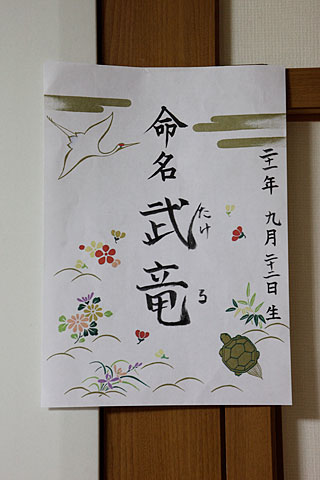 二十一年 九月二十二日 生
命名 武竜
たける